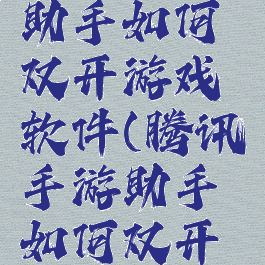 助手如何
双开游戏
软件(腾讯
手游助手
如何双开